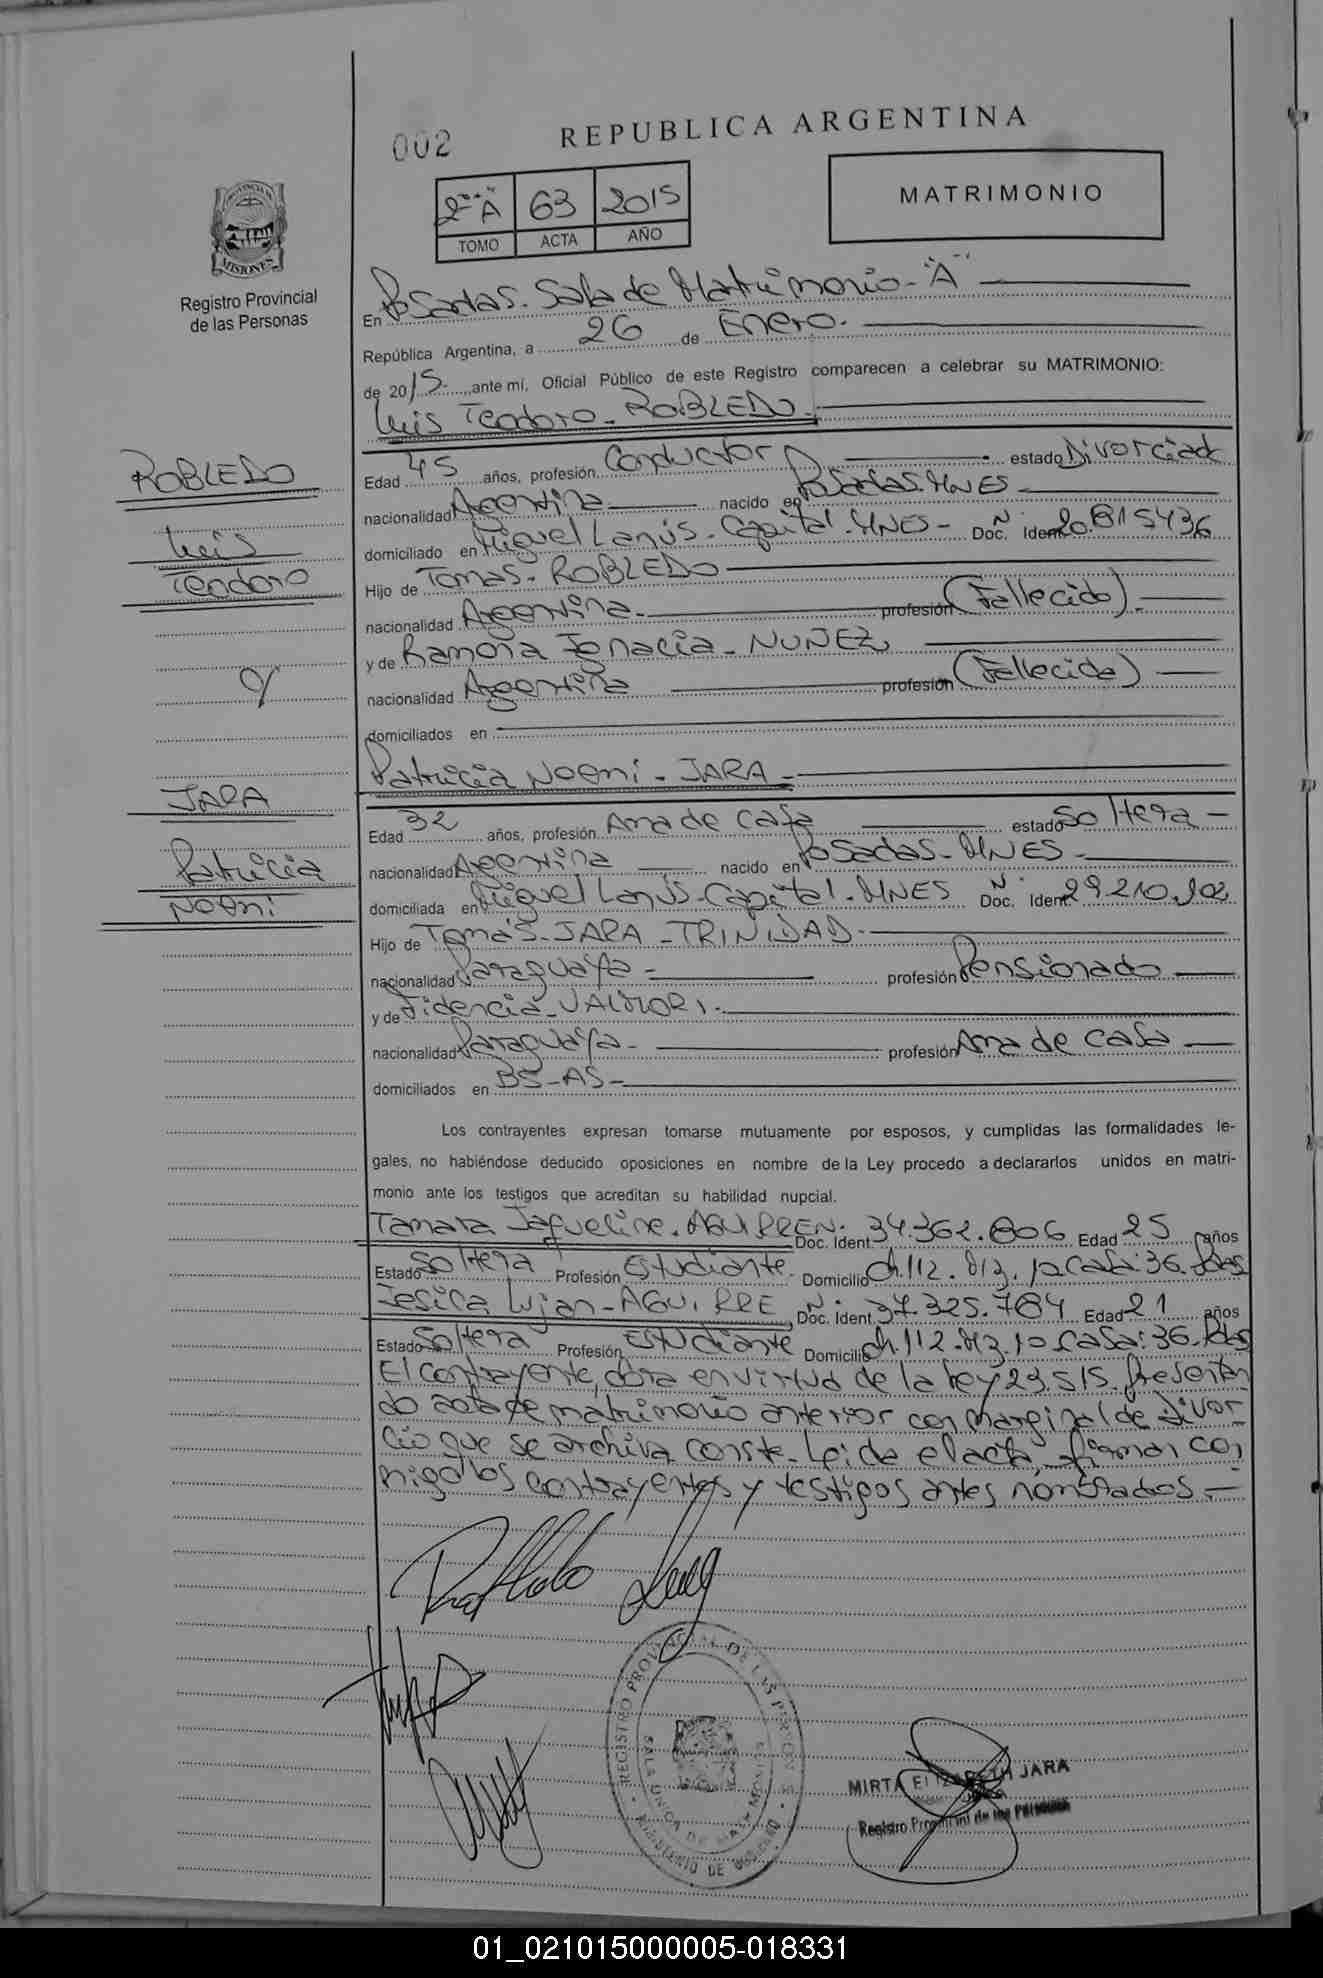 002
REPUBLICA ARGENTINA
2º "A" 63 2015
TOMO ACTA AÑO
MATRIMONIO
PROVINCIA DE
MISIONES
Registro Provincial
de las Personas
En Posadas. Sala de Matrimonio - "A"
República Argentina, a 26 de Enero.
de 2015. ante mí, Oficial Público de este Registro comparecen a celebrar su MATRIMONIO:
Luis Teodoro - ROBLEDO.
ROBLEDO
Luis
Teodoro
Edad 45 años, profesión Conductor estado Divorciado
nacionalidad Argentina nacido en Posadas. MNES
domiciliado en Miguel Lanús. Capital. MNES - Doc. Ident. Nº 20.815436
Hijo de Tomas - ROBLEDO
nacionalidad Argentina. profesión (Fallecido).
y de Ramona Ignacia - NUÑEZ
nacionalidad Argentina profesión (Fallecida)
domiciliados en
y
JARA
Patricia
Noemi
Patricia Noemi - JARA -
Edad 32 años, profesión Ama de casa estado Soltera -
nacionalidad Argentina nacido en Posadas - MNES -
domiciliada en Miguel Lanús - Capital. MNES Doc. Ident. Nº 29.210.902
Hijo de Tomás - JARA - TRINIDAD -
nacionalidad Paraguaya - profesión Pensionado
y de Fidencia -
nacionalidad Paraguaya - profesión Ama de casa
domiciliados en BS - AS -
Los contrayentes expresan tomarse mutuamente por esposos, y cumplidas las formalidades le-
gales, no habiéndose deducido oposiciones en nombre de la Ley procedo a declararlos unidos en matri-
monio ante los testigos que acreditan su habilidad nupcial.
Tamara Jaqueline. AGUIRRE Nº Doc. Ident. 34.362.806 Edad 25 años
Estado Soltera Profesión Estudiante - Domicilio Ch. 112. casa: 36. Pdas
Jesica Lujan - AGUIRRE Nº Doc. Ident. 37.325.784 Edad 21 años
Estado Soltera Profesión Estudiante Domicilio Ch. 112. casa: 36. Pdas
El contrayente, obra en virtud de la Ley 23.515. Presentan
do acta de matrimonio anterior con marginal de Divor
cio que se archiva conste - Leida el acta, firman con
migo los contrayentes y testigos antes nombrados. -
REGISTRO PROVINCIAL DE LAS PERSONAS
SALA UNICA DE MATRIMONIOS
MINISTERIO DE GOBIERNO
MIRTA ELIZABETH JARA
Registro Provincial de las Personas
01_021015000005-018331